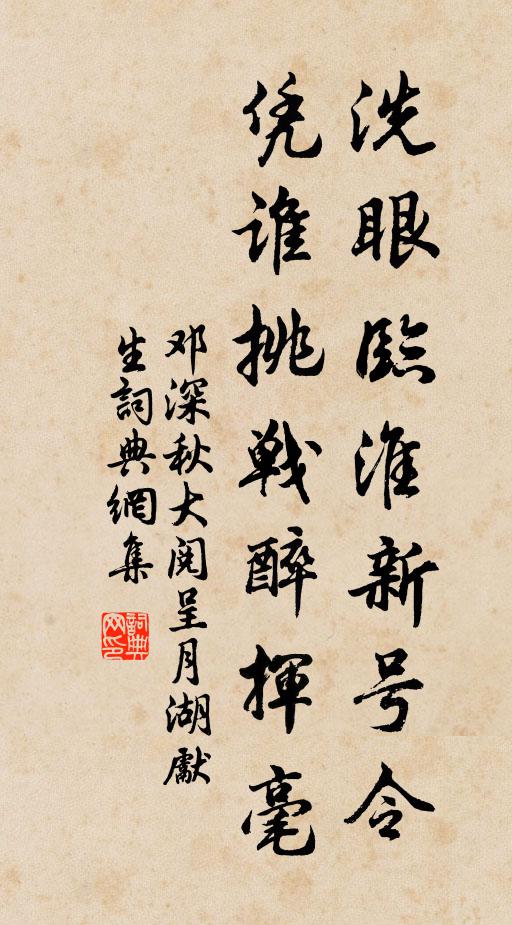 洗眼臨淮新号令
凭谁挑戰醉揮毫
邓深秋大阅呈月湖獻
生詞典網集
詞典
网印